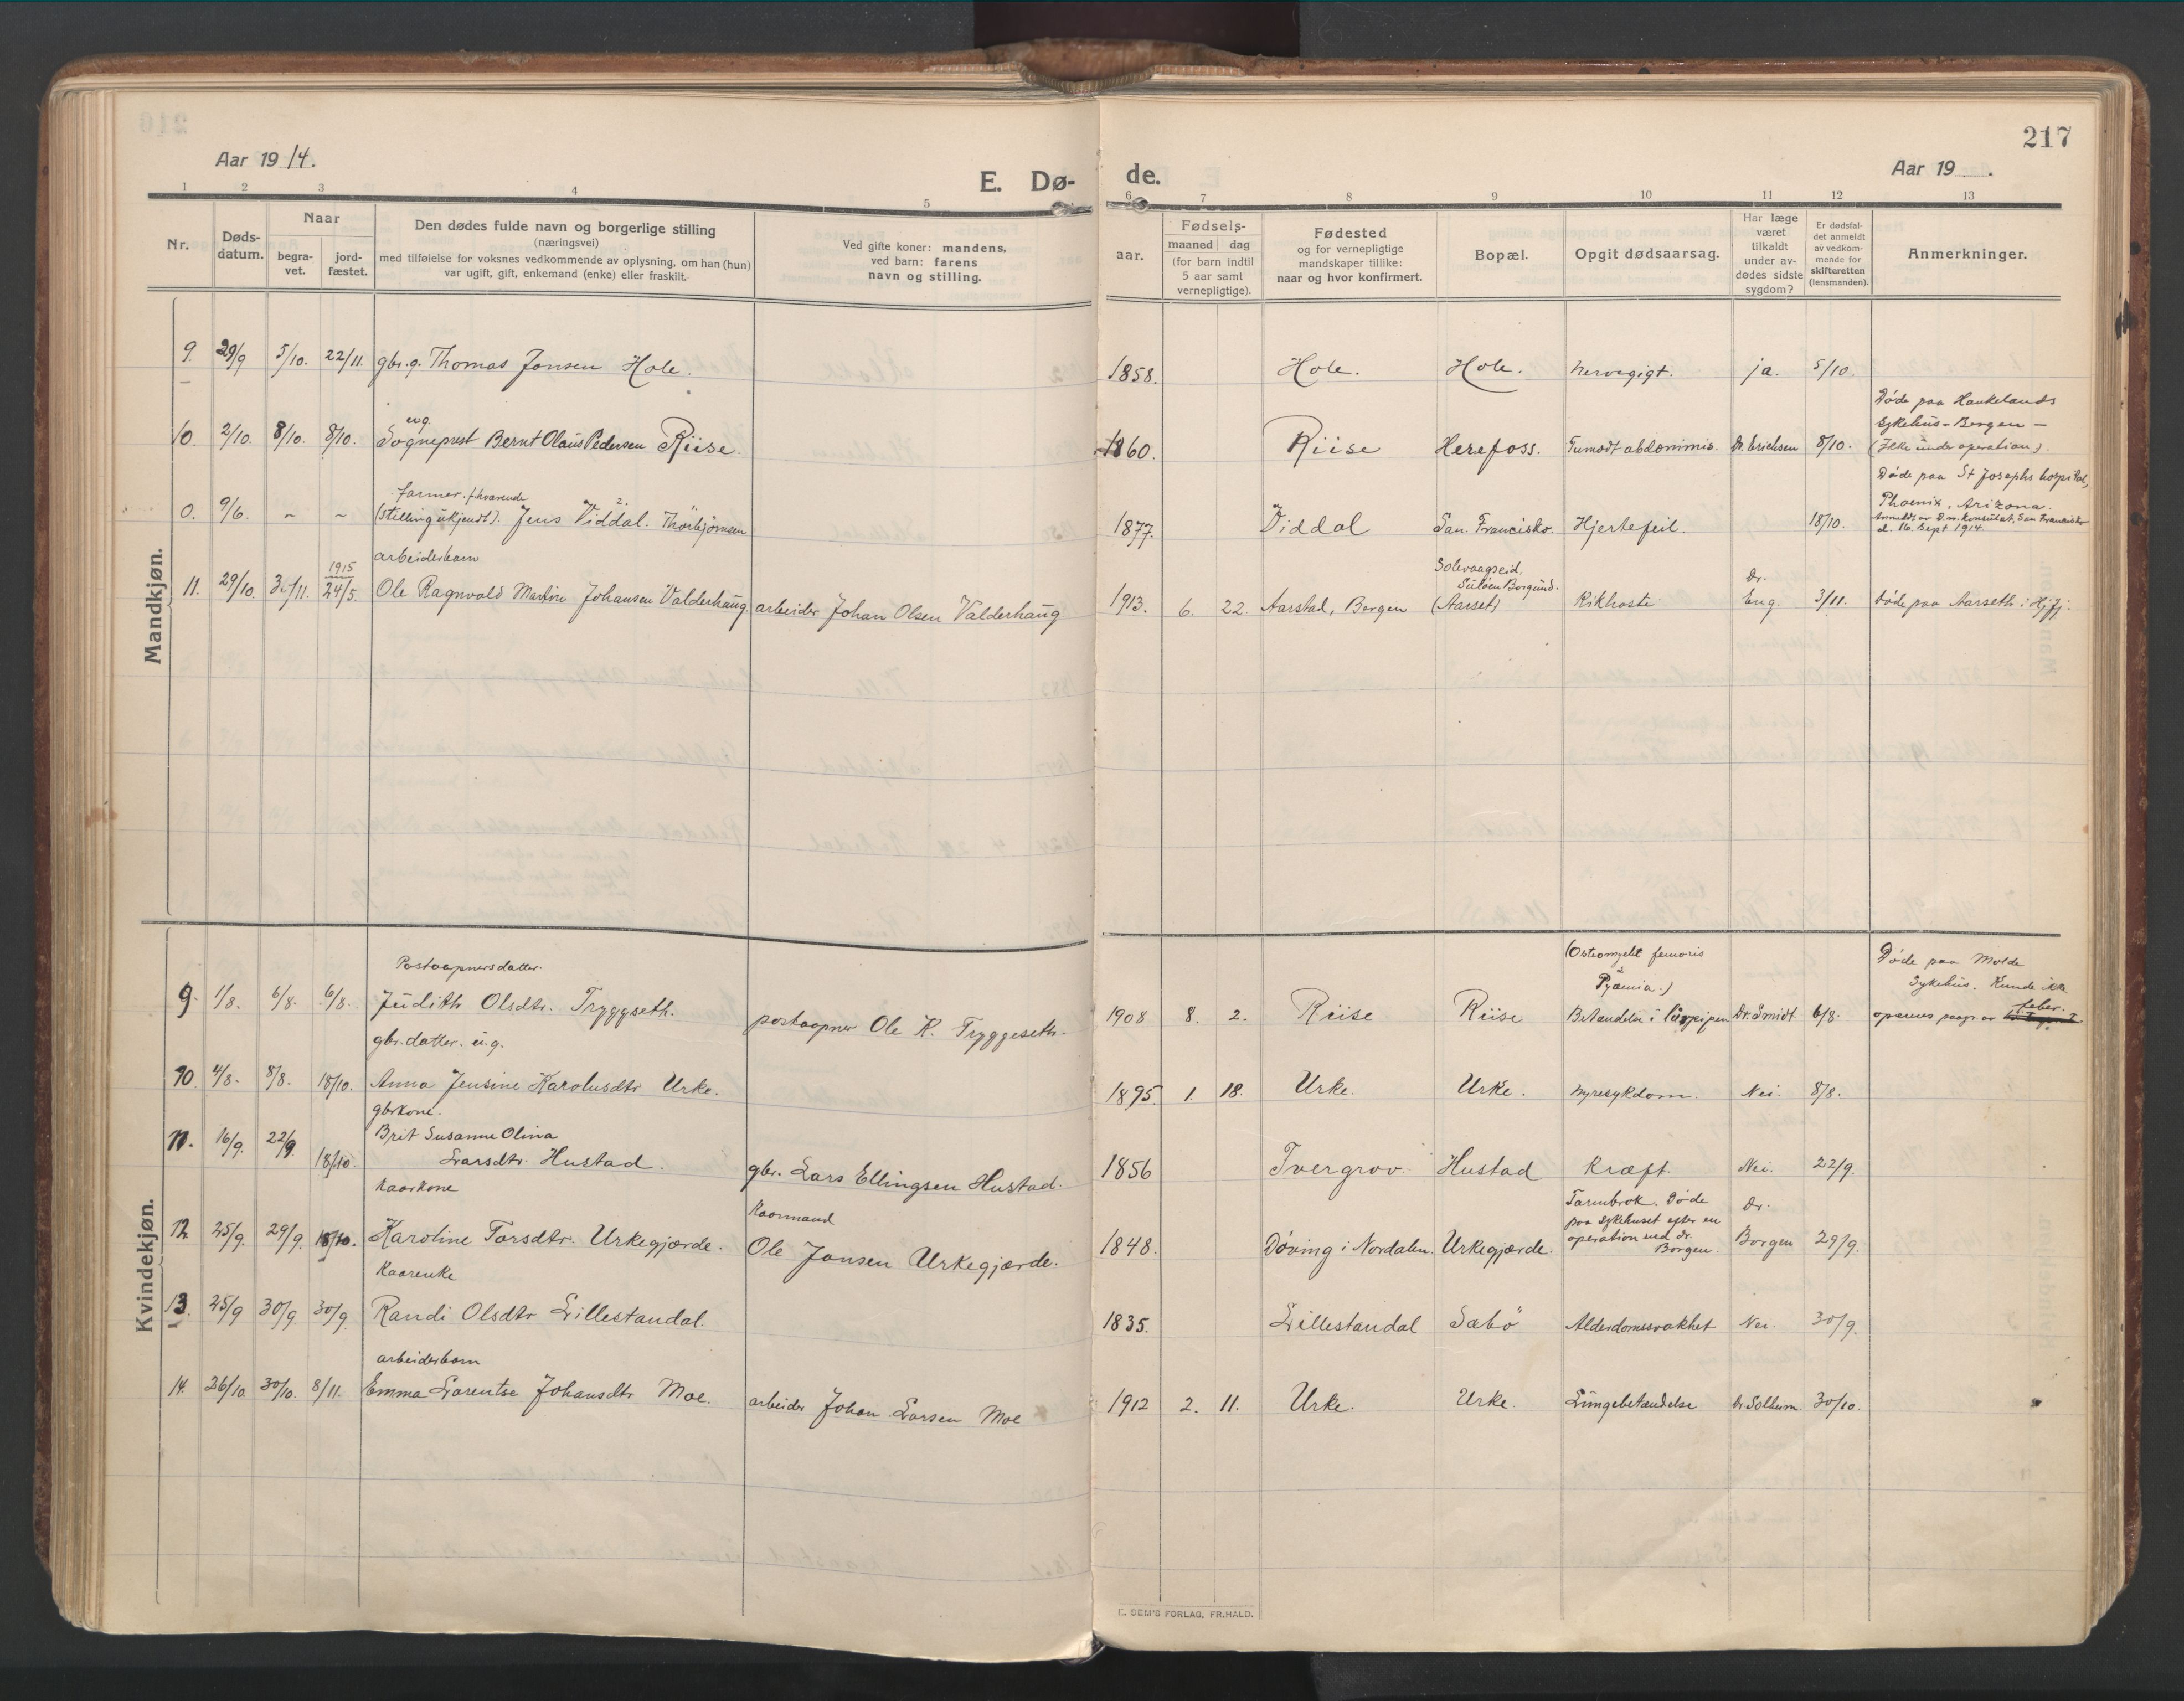 Aar 19 14.
E. Dø-
1 2 3 4 5
Nr.
Døds-
datum.
Naar
begra-
vet.
jord-
fæstet.
Den dødes fulde navn og borgerlige stilling
(næringsvei)
med tilføielse for voksnes vedkommende av oplysning, om han (hun)
var ugift, gift, enkemand (enke) eller fraskilt.
Ved gifte koner: mandens,
ved barn: farens
navn og stilling.
217
de.
Aar 19 .
6 7 8 9 10 11 12 13
aar.
Fødsels-
maaned dag
(for barn indtil
5 aar samt
vernepligtige).
Fødested
og for vernepligtige
mandskaper tillike:
naar og hvor konfirmert.
Bopæl.
Opgit dødsaarsag.
Har læge
været
tilkaldt
under av-
dødes sidste
sygdom?
Er dødsfal-
det anmeldt
av vedkom-
mende for
skifteretten
(lensmanden).
Anmerkninger.
Mandkjøn.
9. 29/9 5/10. 22/11. gbr. g. Thomas Jonsen Hole. 1858. Hole. Hole. Nervegigt. ja. 5/10.
Døde paa Haukelands
Sykehus - Bergen -
(Ikke under operation).
ug.
10. 2/10. 8/10. 8/10. Sogneprest Bernt Olaus Pedersen Riise. 1860. Riise Herefoss. Tumodt abdominis. Dr. Erichsen 8/10.
Døde paa St Josephs hospital,
Phoenix, Arizona.
Anmeldt av D. n. konsulat, San Francisko
d. 16. Sept 1914.
farmer. fhvarende
0. 9/6. - - (Stilling ukjendt). Jens Viddal. Thorbjørnsen 1877. Viddal San. Francisko. Hjertefeil. 18/10.
arbeiderbarn
1915
Solevaagseid,
Suløen Borgund.
Dr.
11. 29/10. 3/11. 24/5. Ole Ragnvald Martin Johansen Valderhaug arbeider Johan Olsen Valderhaug 1913. 6. 22. Aarstad, Bergen (Aarset) Kikhoste Eng. 3/11. Døde paa Aarseth i Hjfj.
Kvindekjøn.
Postaapnersdatter.
(Osteomyelit femoris
Pyæmia.)
Døde paa Molde
Sykehus. Kunde ikke
feber.
9. 1/8. 6/8. 6/8. Judith Olsdtr. Tryggseth. postaapner Ole K. Tryggeseth. 1908 8. 2. Riise Riise Betændelse i Dr. Smidt 6/8. opereres paagr. av
gbr. datter. u.g.
10. 4/8. 8/8. 18/10. Anna Jensine Karolusdtr Urke. 1895. 1. 18. Urke. Urke. Nyresykdom. Nei. 8/8.
gbrkone.
Brit Susanne Olina
11. 16/9. 22/9. 18/10. Larsdtr. Hustad. gbr. Lars Ellingsen Hustad. 1856 Tvergrov. Hustad Kræft. Nei. 22/9.
Kaarkone
Kaarmand
Tarmbrok. Døde
paa Sykehuset efter en
operation ved dr.
Borgen.
Dr.
12. 25/9. 29/9. 18/10. Karoline Torsdtr. Urkegjærde. Ole Jonsen Urkegjærde. 1848. Døving i Nordalen. Urkegjærde. Borgen 29/9.
Kaarenke
13. 25/9 30/9. 30/9. Randi Olsdtr Lillestandal. 1835. Lillestandal Sæbö Alderdomssvakhet Nei. 30/9.
arbeiderbarn
14. 26/10. 30/10. 8/11. Emma Larentse Johansdtr Moe. arbeider Johan Larsen Moe 1912 2. 11. Urke. Urke. Lungebetændelse Dr Solheim 30/10.
E. SEM'S FORLAG, FR.HALD.